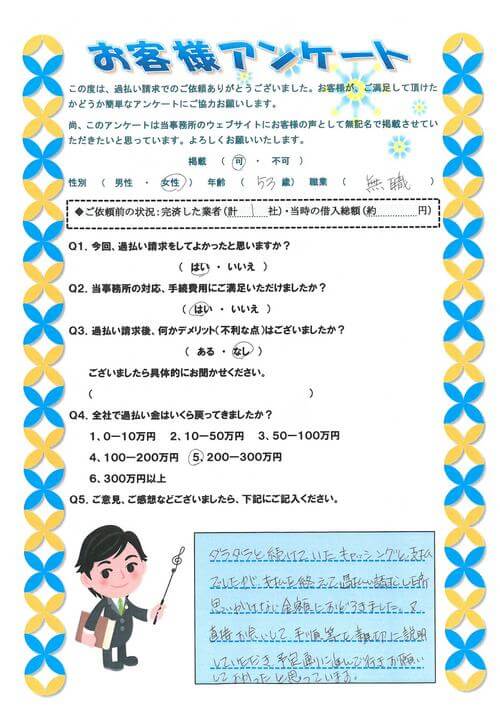 お客様アンケート
この度は、過払い請求でのご依頼ありがとうございました。お客様が、ご満足して頂けた
かどうか簡単なアンケートにご協力お願いします。
尚、このアンケートは当事務所のウェブサイトにお客様の声として無記名で掲載させてい
ただきたいと思っています。よろしくお願いいたします。
掲載 （ 可 ・ 不可 ）
性別 （ 男性 ・ 女性 ） 年齢 （ 53 歳） 職業 （ 無職 ）
◆ご依頼前の状況：完済した業者（計 1 社）・当時の借入総額（約 円）
Q1. 今回、過払い請求をしてよかったと思いますか？
（ はい ・ いいえ ）
Q2. 当事務所の対応、手続費用にご満足いただけましたか？
（ はい ・ いいえ ）
Q3. 過払い請求後、何かデメリット（不利な点）はございましたか？
（ ある ・ なし ）
ございましたら具体的にお聞かせください。
（ ）
Q4. 全社で過払い金はいくら戻ってきましたか？
1、0－10万円 2、10－50万円 3、50－100万円
4、100－200万円 5、200－300万円
6、300万円以上
Q5. ご意見、ご感想などございましたら、下記にご記入ください。
ダラダラと続けていたキャッシングと支払
でしたが、支払を終えて過払い請求した所
思いがけない金額におどろきました。又
直接お会いして手順等を親切に説明
していただき予定通りに進んで行きお願い
してよかったと思っています。